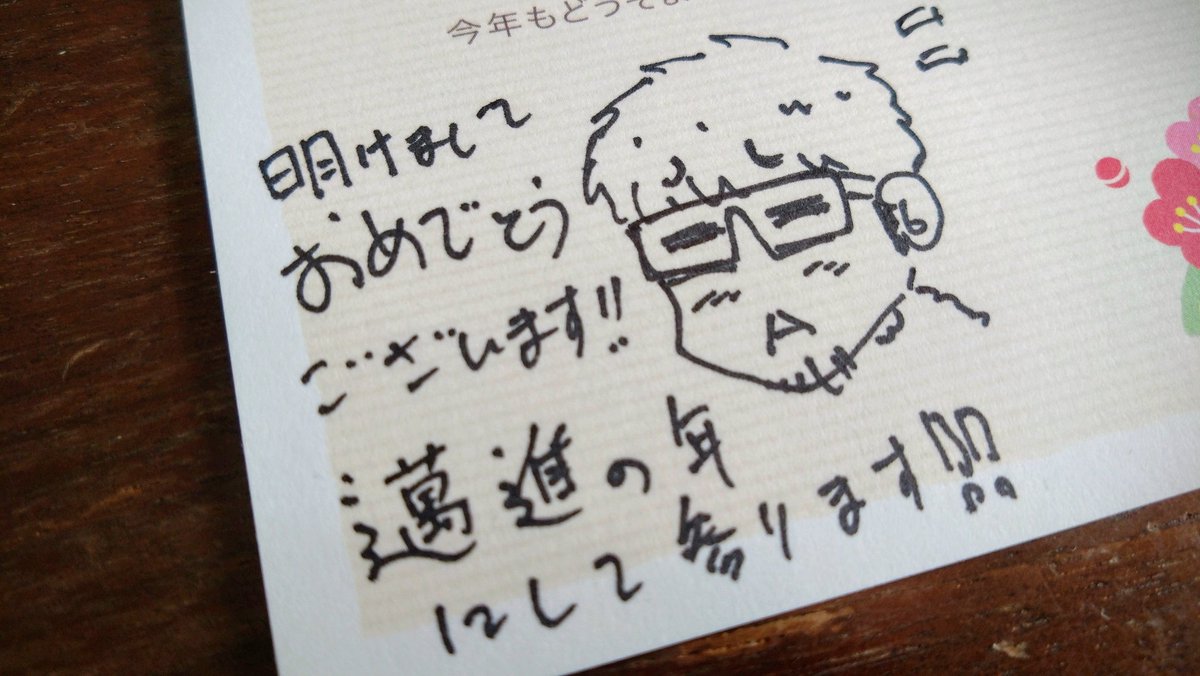 今年もどうぞよ
明けまして
おめでとう
ございます!!
邁進の年
にして参ります!!!